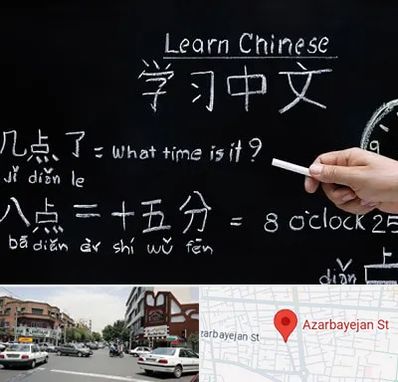 Learn Chinese
学习中文
几点了 = What time is it?
jǐ diǎn le
八点二十五分 = 8 o'clock 25
bā diǎn èr shí wǔ fēn
diǎn 上
9
Azarbayejan St
zarbayejan St